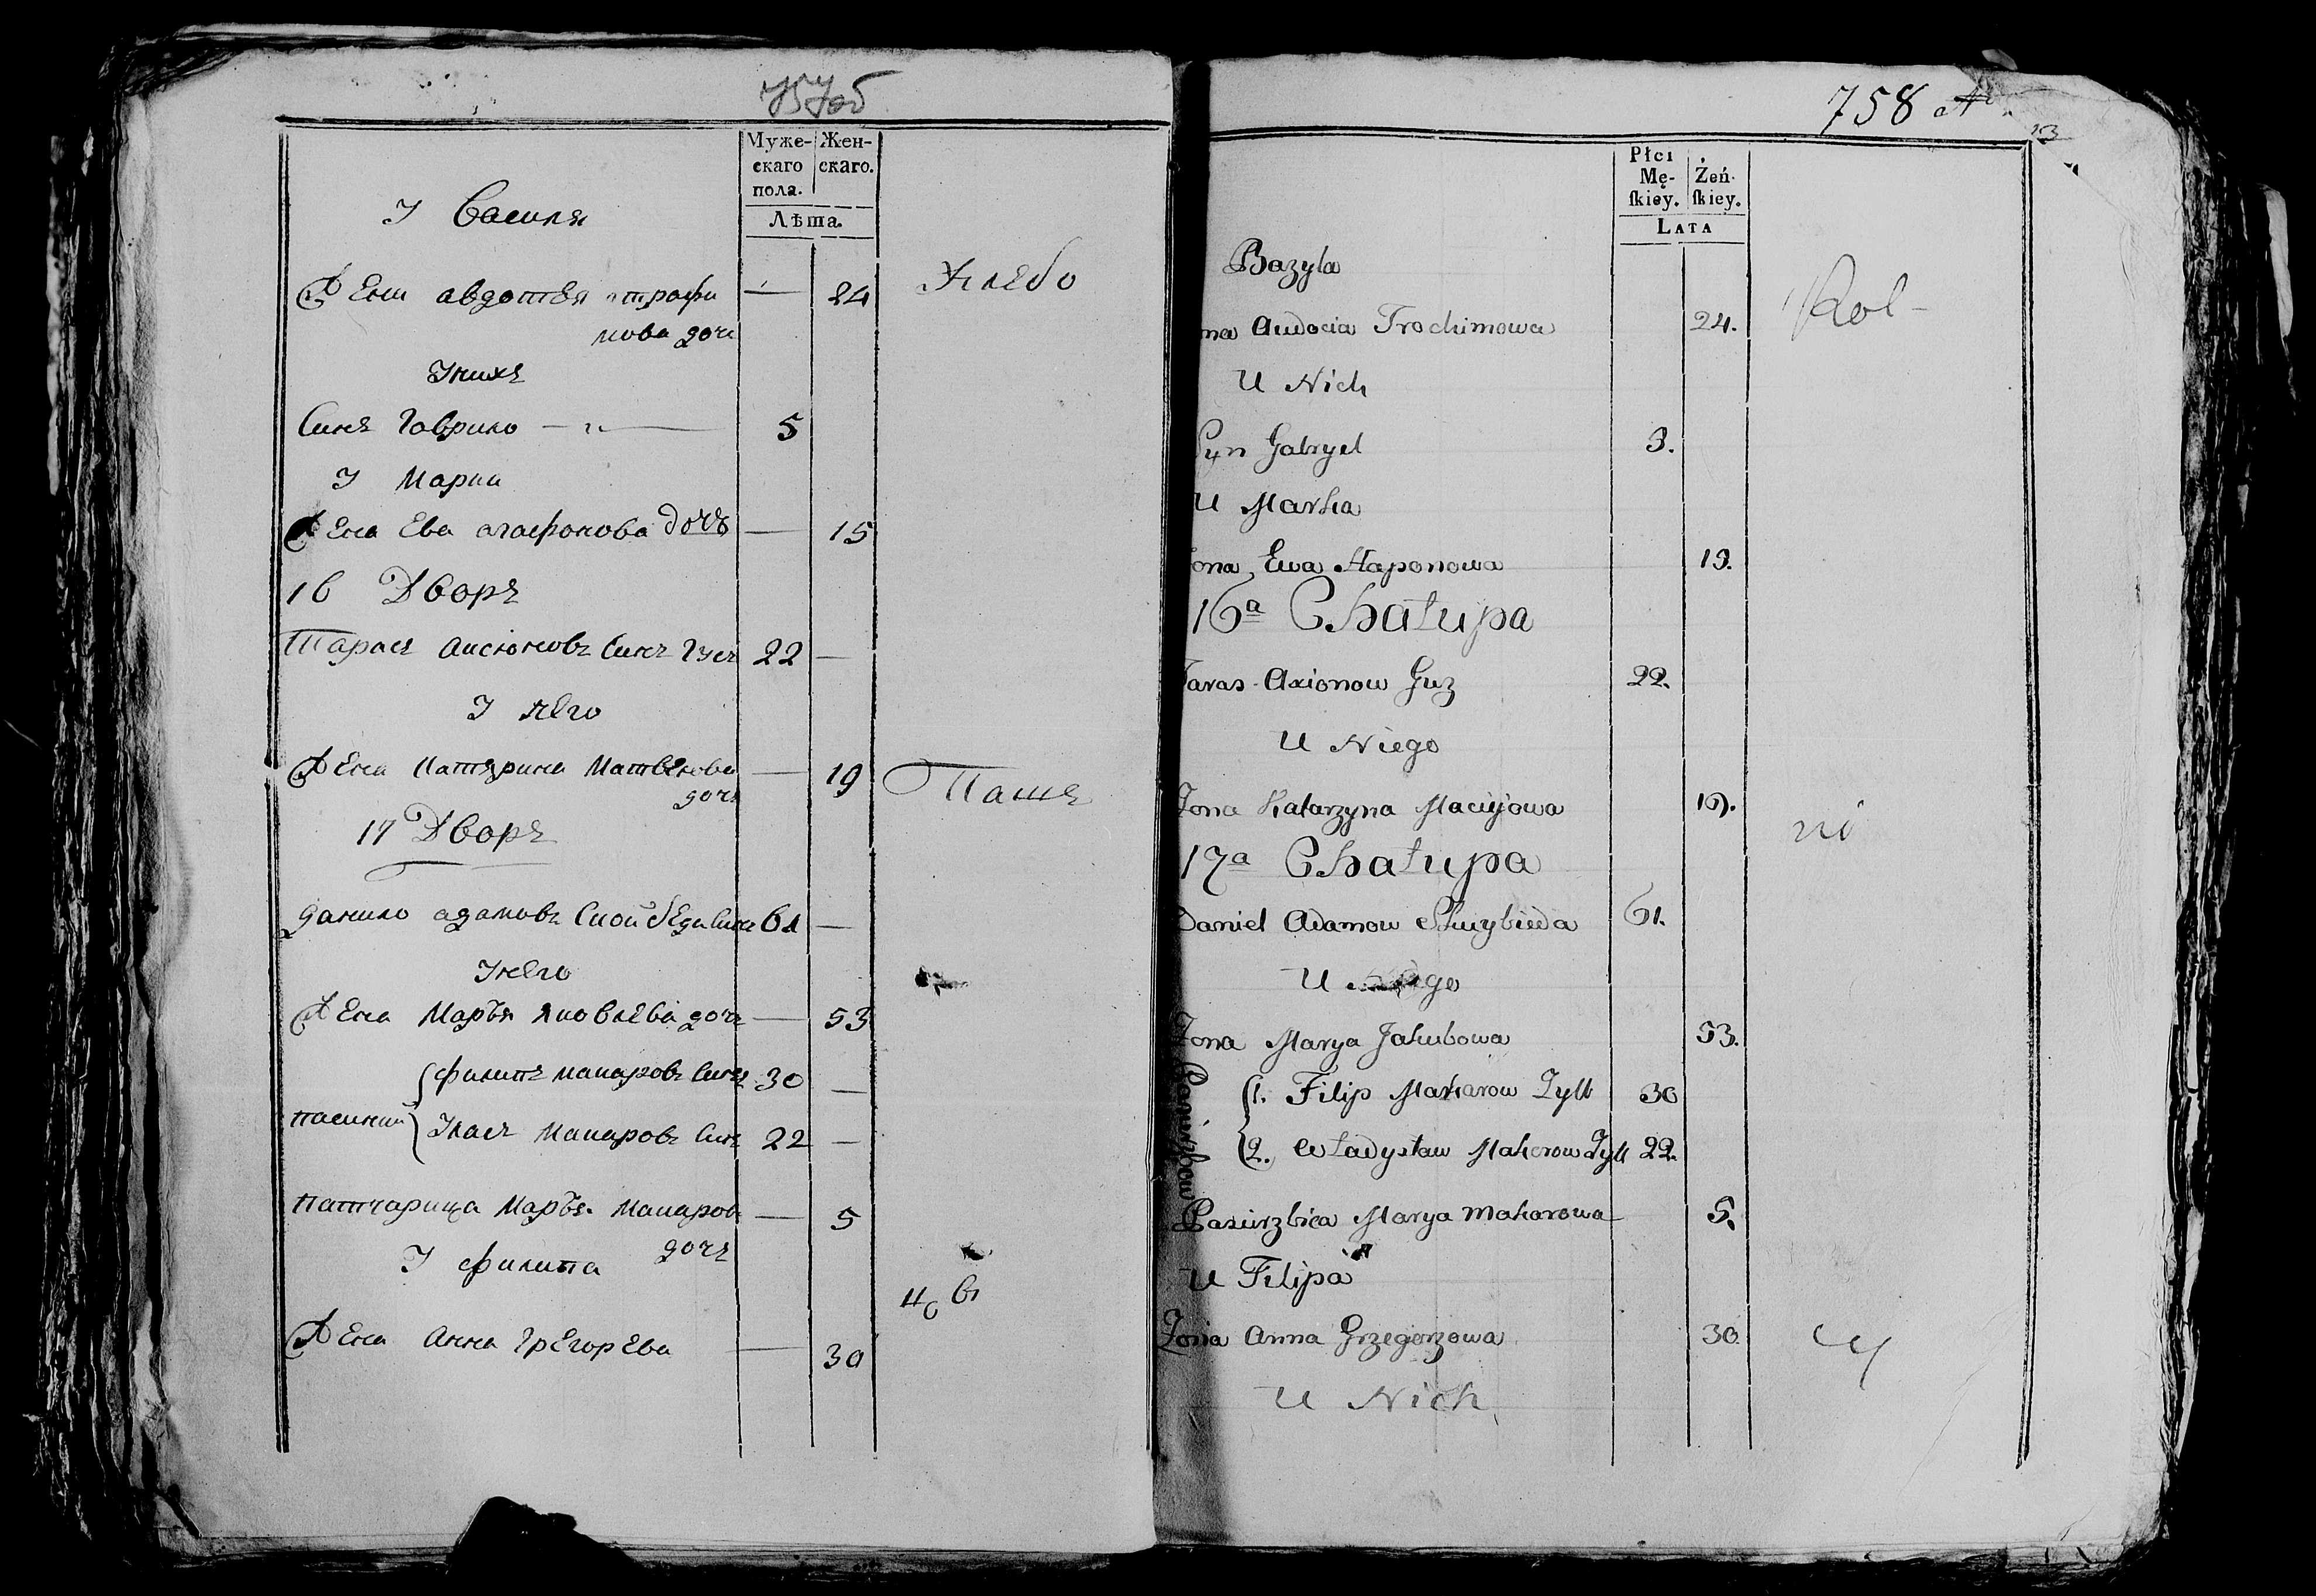 757об
Муже-
скаго
пола.
Жен-
скаго.
Лѣта.
У Василя
Жена авдотья трофи
мова дочь
24
Хлебо
У нихъ
Синъ Гаврило
5
У Марки
Жена Ева агафонова дочь — 15
16 Дворъ
Тарасъ аксюновъ Синъ Гузъ 22 —
У него
Жена Катярина Матвеюва — 19
дочь
Пашъ
17 Дворъ
данило адамовъ Скои бЕда Синъ 61 —
У него
Жена Маръя яковлЕва дочь — 53
филипъ макаровъ Синъ 30 —
пасинки
Уласъ макаровъ Синъ 22 —
патчарица Маръя Макаров — 5
дочъ
У филипа
цовъ
Жена Анна ГрЕгорЕва — 30
758
Płci
Mę-
ſkiey.
Żeń-
ſkiey.
LATA
Bazyla
na Audocia Trochimowa 24. Rol-
U Nich
Syn Gabryel 3.
U Marka
ona Ewa Haponowa 19.
16a Chałupa
Taras Axionow Guz 22.
U Niego
Żona Katarzyna Maciyowa 19. ni
17a Chałupa
Daniel Adamow Skuybieda 61.
U Niego
Żona Marya Jakubowa 53.
Pasierzbow
1. Filip Makarow Zyll 30
2. Władysław Makerow Zyll 22.
Pasierzbica Marya Makarowa 5.
U Filipa
Żona Anna Grzegorzowa 30 cy
U Nich